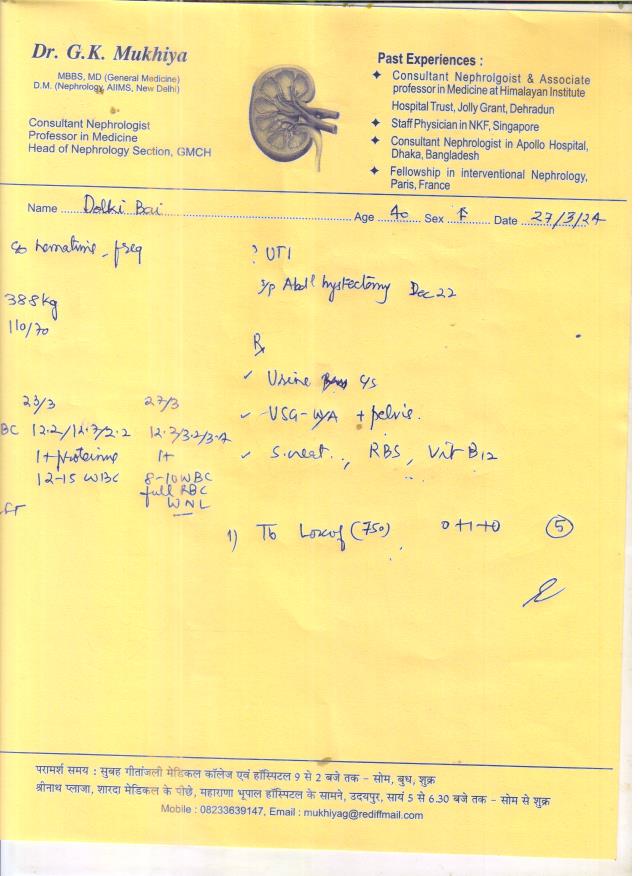 Dr. G.K. Mukhiya
MBBS, MD (General Medicine)
D.M. (Nephrology, AIIMS, New Delhi)
Consultant Nephrologist
Professor in Medicine
Head of Nephrology Section, GMCH
Past Experiences :
✦ Consultant Nephrolgoist & Associate
professor in Medicine at Himalayan Institute
Hospital Trust, Jolly Grant, Dehradun
✦ Staff Physician in NKF, Singapore
✦ Consultant Nephrologist in Apollo Hospital,
Dhaka, Bangladesh
✦ Fellowship in interventional Nephrology,
Paris, France
Name Dolki Bai Age 40 Sex F Date 27/3/24
c/o hematuria - freq
38.8 kg
110/70
23/3 27/3
BC 12.2/12.7/2.2
1+ proteinure 1+
12-15 WBC 8-10 WBC
full RBC
WNL
? UTI
s/p Abdl hystectomy Dec 22
Rx
✓ Urine c/s
✓ -USG-W/A + pelvis.
✓ S.creat., RBS, Vit B12
1) Tb Loxof (750) 0+1+0 5
परामर्श समय : सुबह गीतांजली मेडिकल कॉलेज एवं हॉस्पिटल 9 से 2 बजे तक – सोम, बुध, शुक्र
श्रीनाथ प्लाजा, शारदा मेडिकल के पीछे, महाराणा भूपाल हॉस्पिटल के सामने, उदयपुर, सायं 5 से 6.30 बजे तक – सोम से शुक्र
Mobile : 08233639147, Email : mukhiyag@rediffmail.com